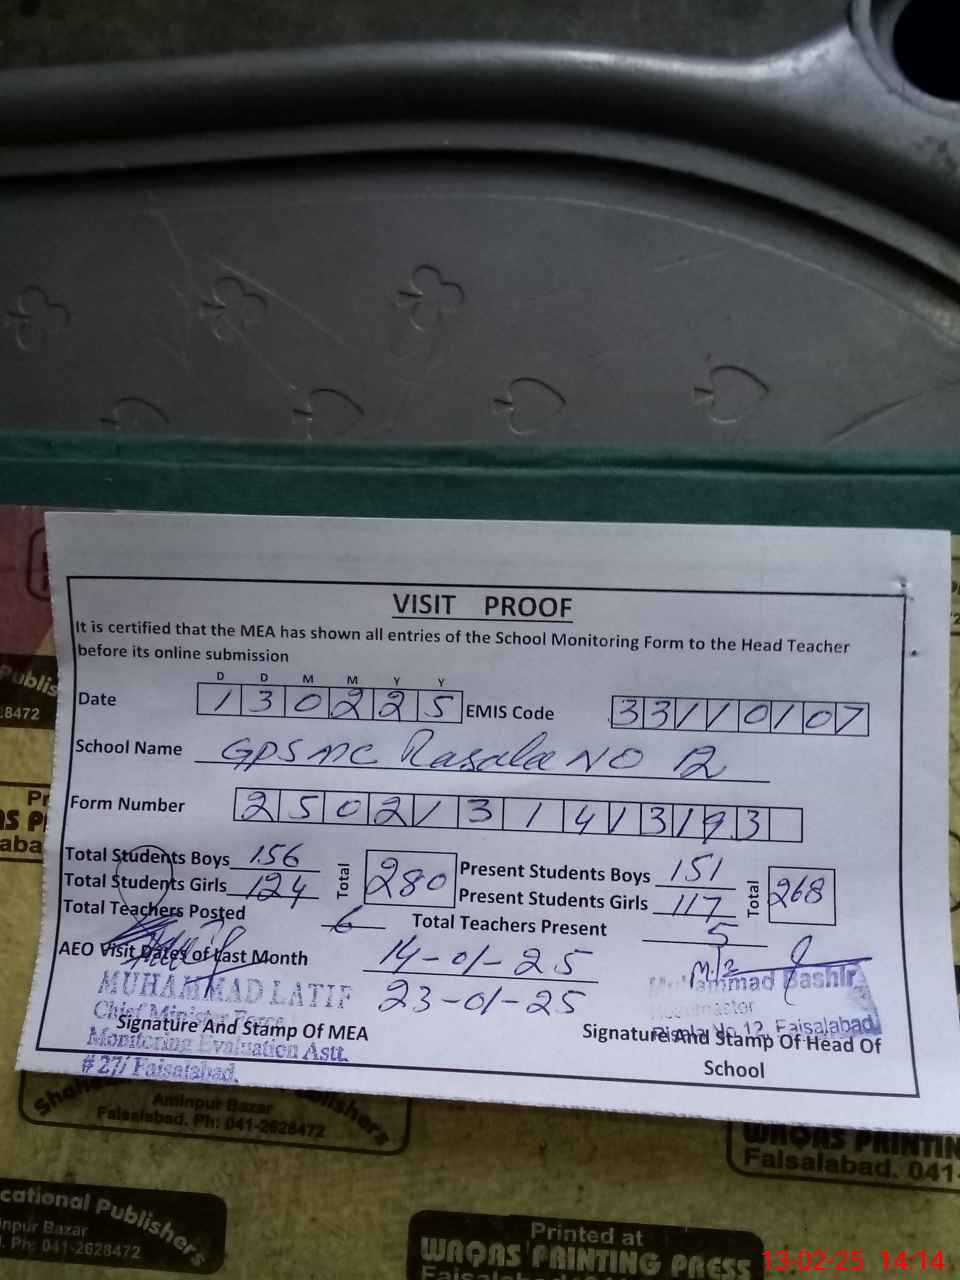 VISIT PROOF
It is certified that the MEA has shown all entries of the School Monitoring Form to the Head Teacher
before its online submission
D D M M Y Y
Date 130225 EMIS Code 33110107
School Name GPSMC Rasala NO 12
Form Number 2502131413193
Total Students Boys 156 Total 280 Present Students Boys 151 Total 268
Total Students Girls 124 Present Students Girls 117
Total Teachers Posted 6 Total Teachers Present 5
AEO Visit Dates of Last Month 14-01-25
23-01-25
MUHAMMAD LATIF
Chief Minister Force
Monitoring Evaluation Astt.
# 27/ Faisalabad.
Signature And Stamp Of MEA
Muhammad Bashir
Headmaster
Risala No 12, Faisalabad
Signature And Stamp Of Head Of
School
Publis
.8472
Aminpur Bazar
Faisalabad. Ph: 041-2628472
Publishers
cational Publishers
inpur Bazar
. Ph: 041-2628472
WAQAS PRINTIN
Faisalabad. 041-
Printed at
WAQAS PRINTING PRESS
13-02-25 14:14